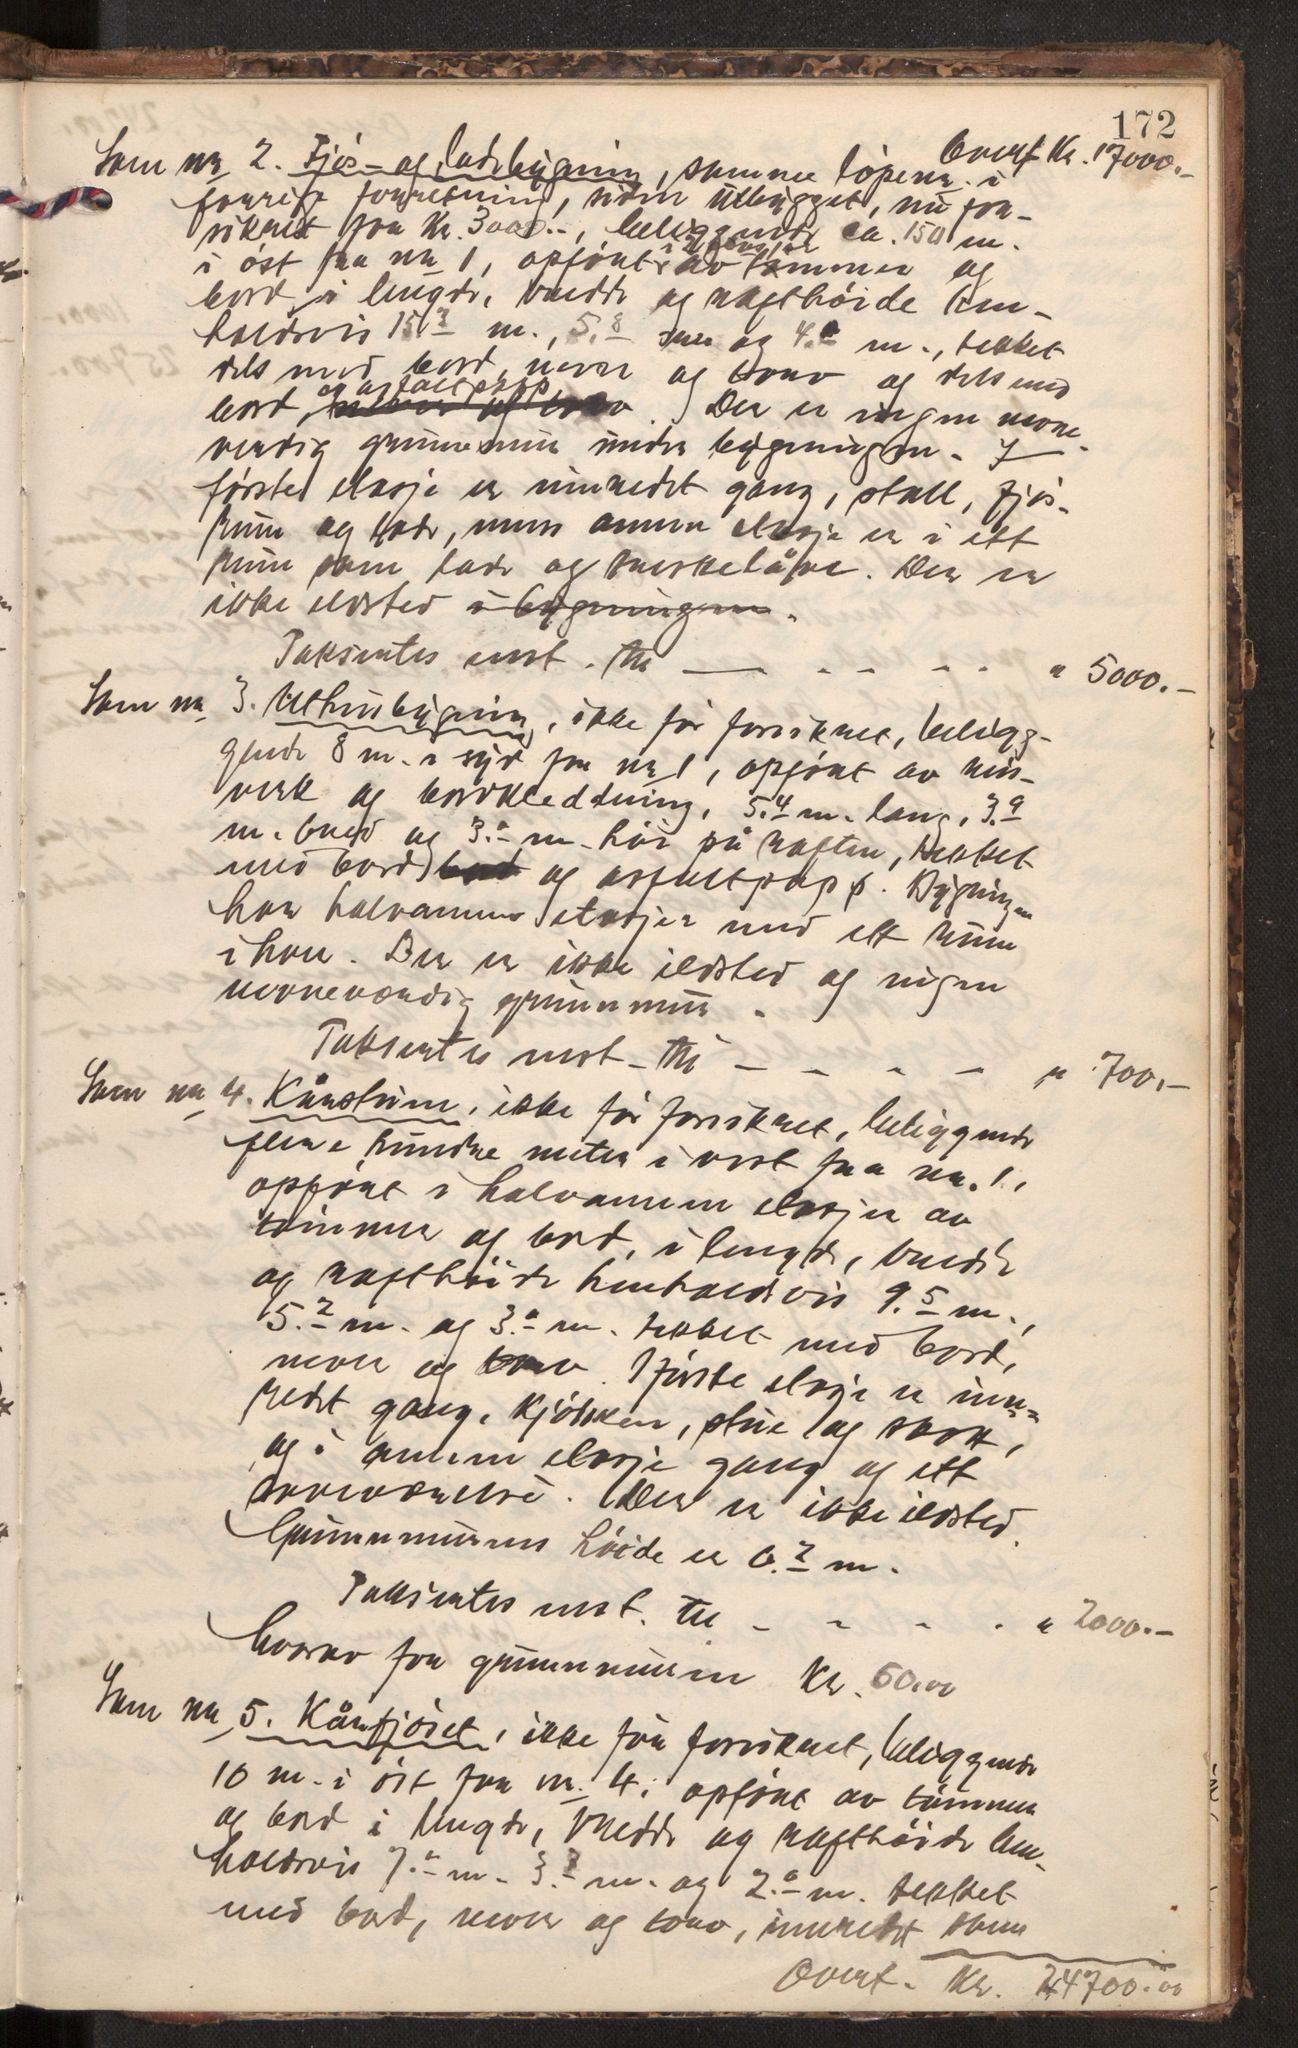 172
Overf Kr. 17000.-
Som nr 2. Fjøs- og ladebygning, samme løpenr. i
forrige forretning, siden utbygget, nu for-
sikret for Kr. 3000.-, beliggende ca. 150 m.
i øst fra nr 1, opført av tømmer og
bord i lengde, bredde og rafthøide hen-
holdsvis 15.3 m., 5.8 m og 4.0 m., tekket
dels med bord, never og torv og dels med
bord, og asfaltpapp never og torv. Der er ingen nevne-
verdig grunnmur under bygningen. I
første etasje er innredet gang, stall, fjøs-
rum og lade, mens annen etasje er i ett
rum som lade og treskelåve. Der er
ikke ildsted i bygningen.
Takseertes uvst. til - - - - - " 5000.-
Som nr 3. Uthusbygning, ikke før forsikret, beligg-
gende 8 m. i syd fra nr 1, opført av reis-
verk og bordkledning, 5.4 m. lang, 3.9
m. bred og 3.0 m. høi på raften, tekket
med bord og asfaltpapp. Bygningen
har halvannen etasjer med ett rum
i hver. Der er ikke ildsted og ingen
nevneverdig grunnmur.
Takseertes uvst. til - - - - " 700.-
Som nr 4. Kårstuen, ikke før forsikret, beliggende
flere hundre meter i vest fra nr. 1,
opført i halvannen etasjer av
tømmer og bord, i lengde, bredde
og rafthøide henholdsvis 9.5 m.,
5.2 m. og 3.0 m. tekket med bord,
never og torv. I første etasje er inn-
redet gang, kjøkken, stue og
og i annen etasje gang og ett
soveværelse. Der er ikke ildsted.
Grunnmurens høide er 0.2 m.
Takseertes uvst. til - - - - " 2000.-
hvorav for grunnmuren Kr. 60.00
Som nr 5. Kårfjøset, ikke før forsikret, beliggende
10 m. i øst fra nr. 4, opført av tømmer
og bord i lengde, bredde og rafthøide hen-
holdsvis 7.0 m. 3.7 m. og 2.0 m. tekket
med bord, never og torv, innredet som
Overf. Kr. 24700.00